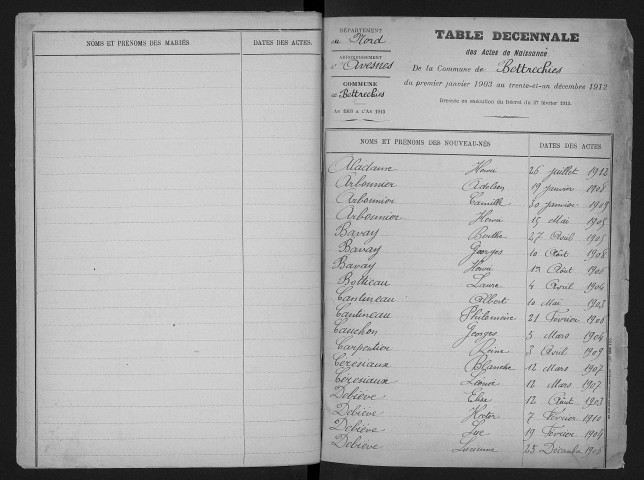 NOMS ET PRÉNOMS DES MARIÉS DATES DES ACTES.
DÉPARTEMENT
du Nord
ARRONDISSEMENT
d'Avesnes
COMMUNE
de Bettrechies
AN 1903 A L'AN 1913
TABLE DECENNALE
des Actes de Naissance
De la Commune de Bettrechies
du premier janvier 1903 au trente-et-un décembre 1912
Dressée en exécution du Décret du 27 février 1913.
NOMS ET PRÉNOMS DES NOUVEAU-NÉS DATES DES ACTES
Henri 26 juillet 1912
Arbonnier 19 janvier 1908
Arbonnier Camille 30 janvier 1909
Arbonnier Henri 15 Mai 1905
Bavay Berthe 27 Avril 1905
Bavay Georges 10 Août 1908
Bavay Henri 13 Août 1906
Laure 4 Avril 1904
Cantineau Albert 10 Mai 1903
Cantineau Philomène 21 Février 1906
Cauchon Georges 5 Mars 1904
Carpentier Reine 3 Avril 1909
Cerésiaux Blanche 12 Mars 1907
Cerésiaux Léonce 12 Mars 1907
Debiève Elise 12 Août 1903
Debiève 7 Février 1910
Debiève Luc 19 Février 1904
Debiève Lucienne 25 Décembre